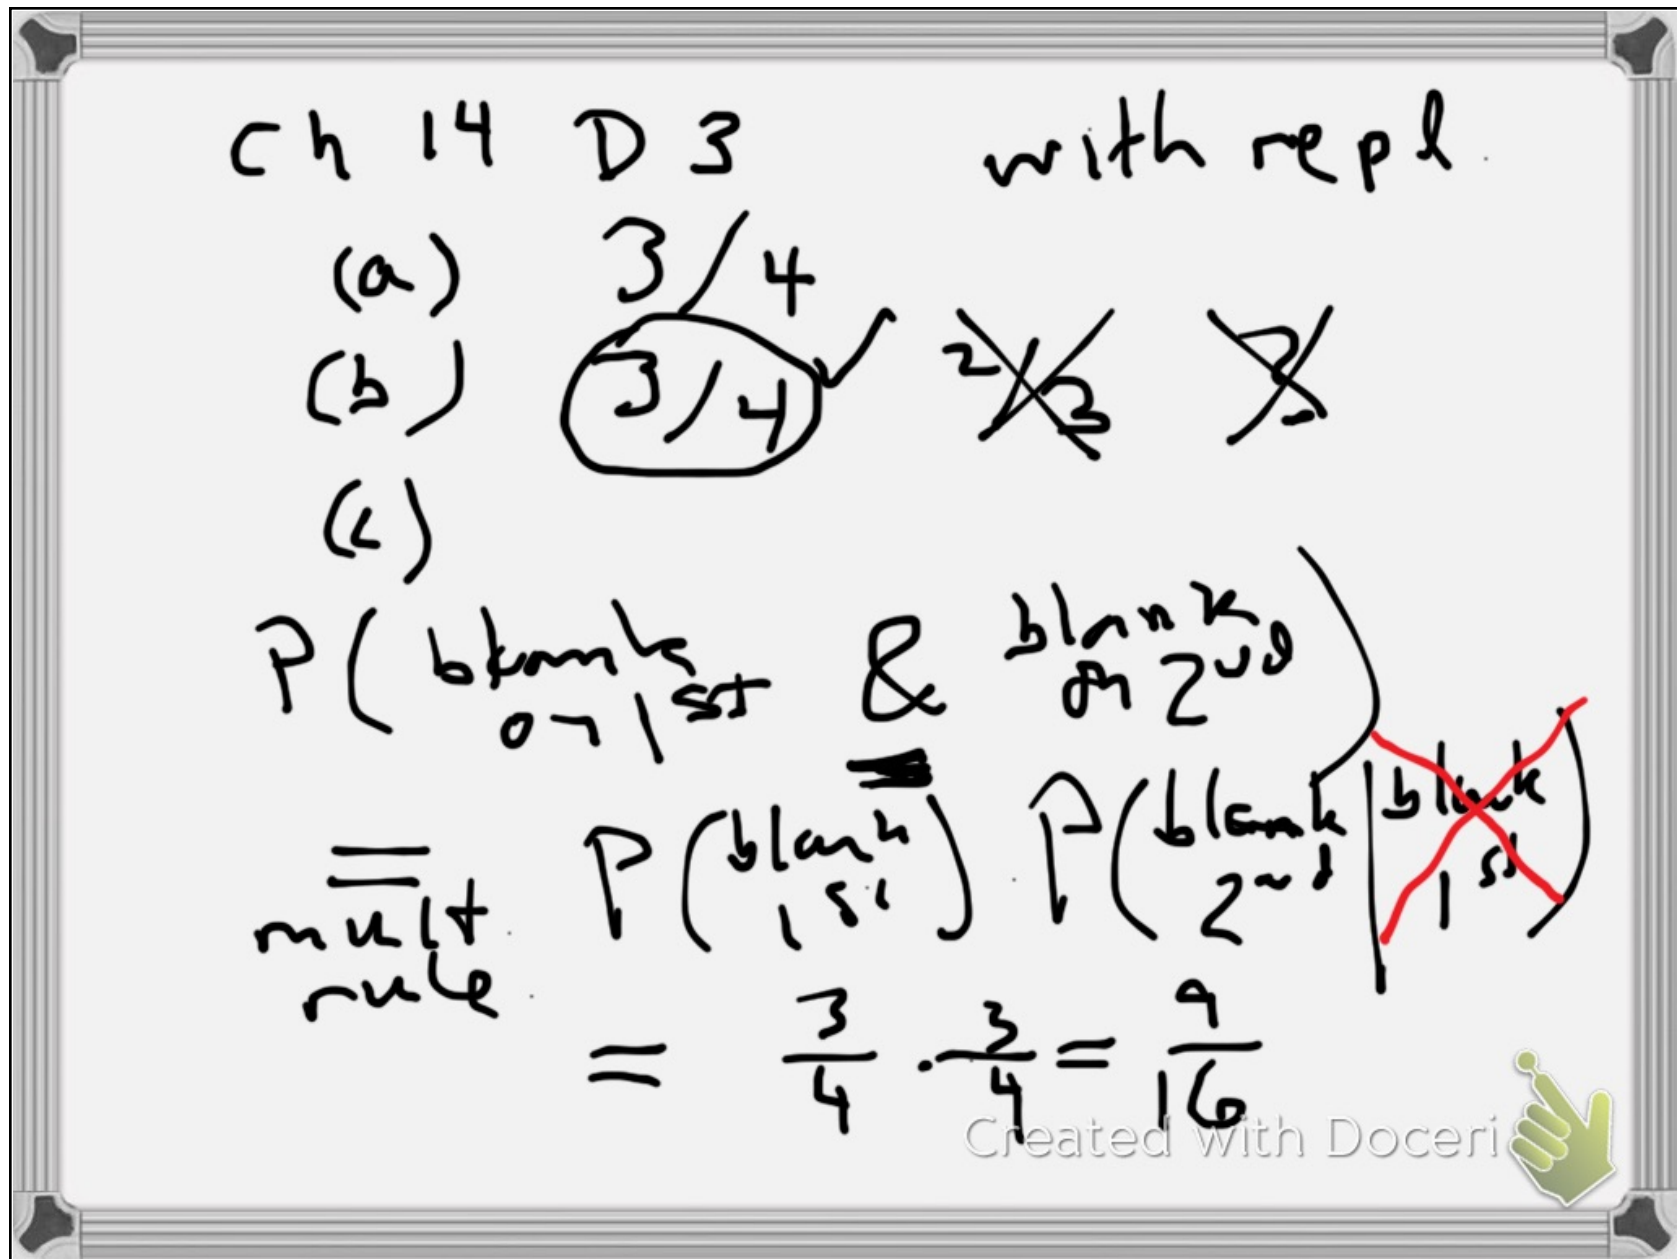 Ch 14 D 3 with repl.
(a) 3/4
(b) 3/4 2/3
(c)
P( blank on 1st & blank on 2nd )
= P( blank 1st ) . P( blank 2nd | blank 1st )
mult. rule.
= 3/4 . 3/4 = 9/16
Created with Doceri